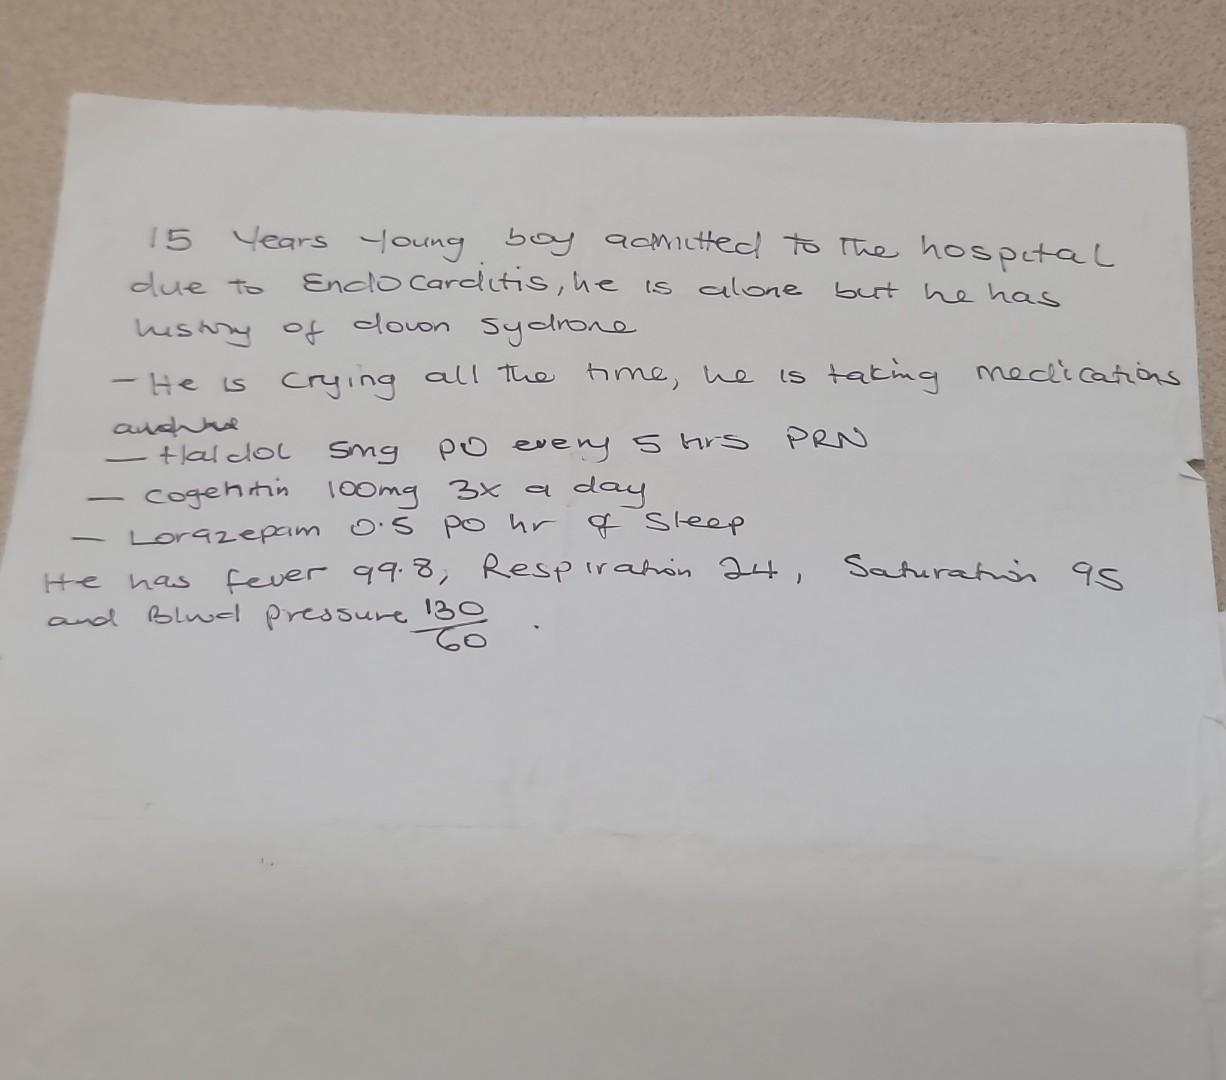 15 Years young boy admitted to the hospital
due to Endocarditis, he is alone but he has
history of down sydrone
- He is crying all the time, he is taking medications
- Haldol 5mg po every 5 hrs PRN
- cogehtin 100mg 3x a day
- Lorazepam 0.5 po hr of sleep
He has fever 99.8, Respiration 24, Saturation 95
and Blood pressure 130/60.